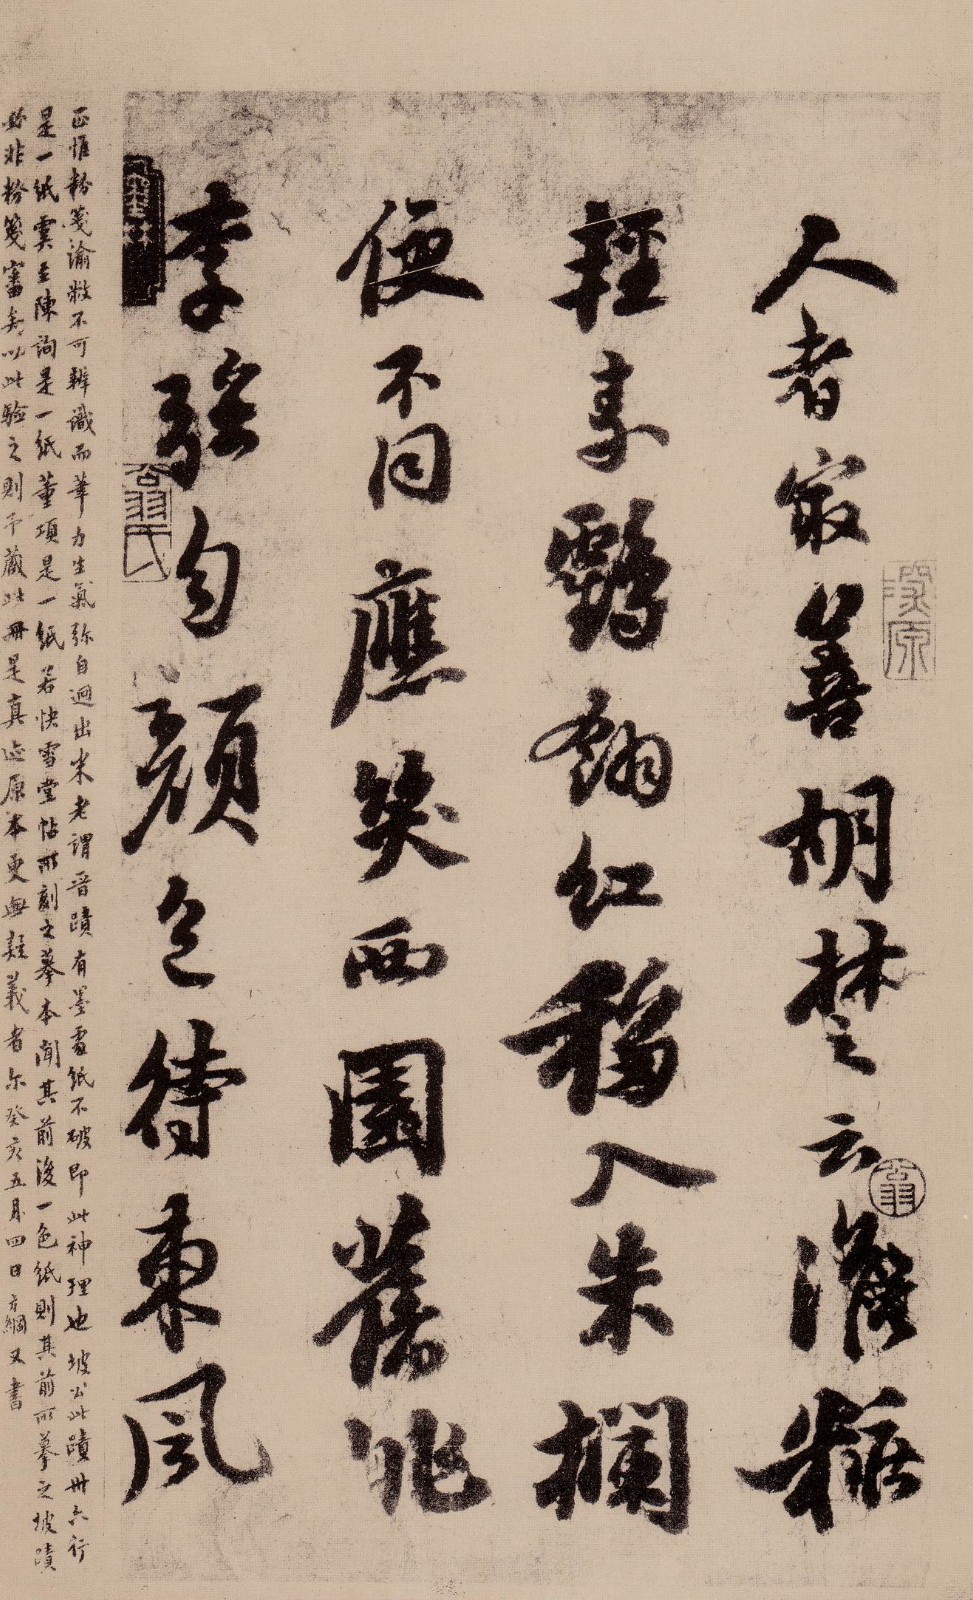 人者最善胡楚云澹粧
輕素鶴翎紅移入朱欄
便不同應笑西園舊桃
李強勻顏色待東風
翁
翁氏
正惟粉箋渝敝不可辨識而筆力生氣弥自迥出米老謂晉蹟有墨處紙不破即此神理也坡公此蹟卅六行
是一紙虞至陳詢是一紙董項是一紙若快雪堂帖所刻之摹本聞其前後一色紙則其前所摹之坡蹟
必非粉箋審矣以此驗之則予藏此冊是真迹原本更無疑義者尔癸亥五月四日方綱又書